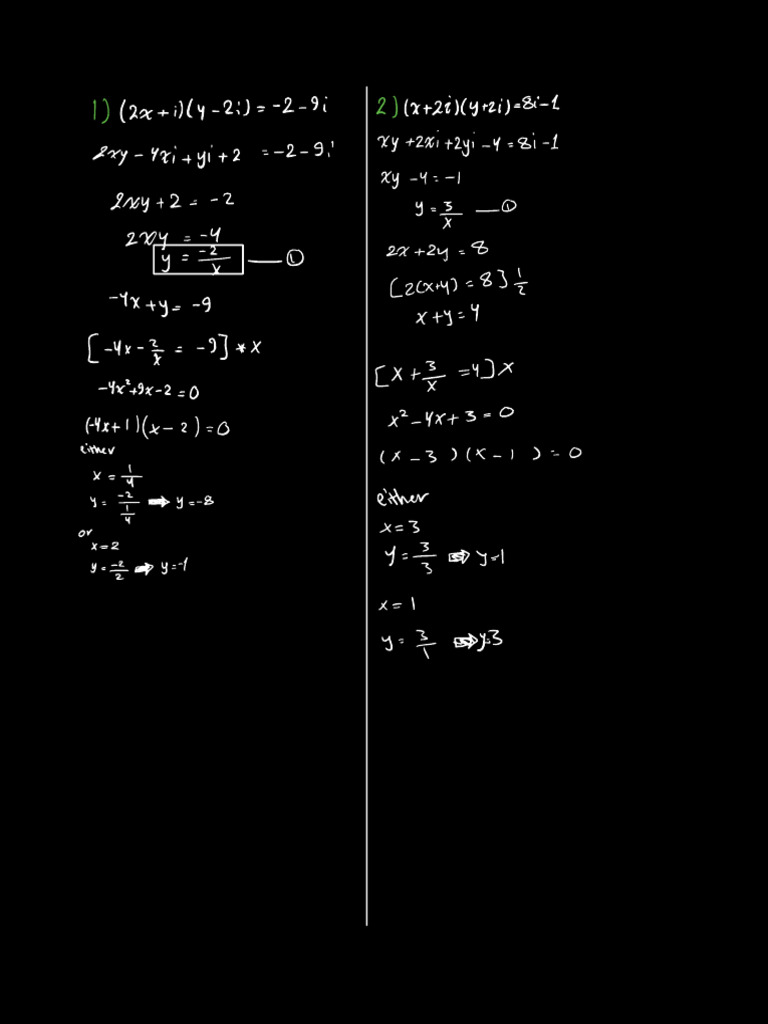 1) (2x+i)(y-2i) = -2-9i
2xy-4xi+yi+2 = -2-9i
2xy+2 = -2
2xy = -4
y = -2/x —— ①
-4x+y = -9
[-4x-2/x = -9]*x
-4x²+9x-2=0
(-4x+1)(x-2)=0
either
x = 1/4
y = -2/(1/4) ⇒ y=-8
or
x=2
y = -2/2 ⇒ y=-1
2) (x+2i)(y+2i)=8i-1
xy+2xi+2yi-4=8i-1
xy-4=-1
y = 3/x —— ①
2x+2y=8
[2(x+y)=8]1/2
x+y=4
[x+3/x=4]x
x²-4x+3=0
(x-3)(x-1)=0
either
x=3
y=3/3 ⇒ y=1
x=1
y=3/1 ⇒ y=3